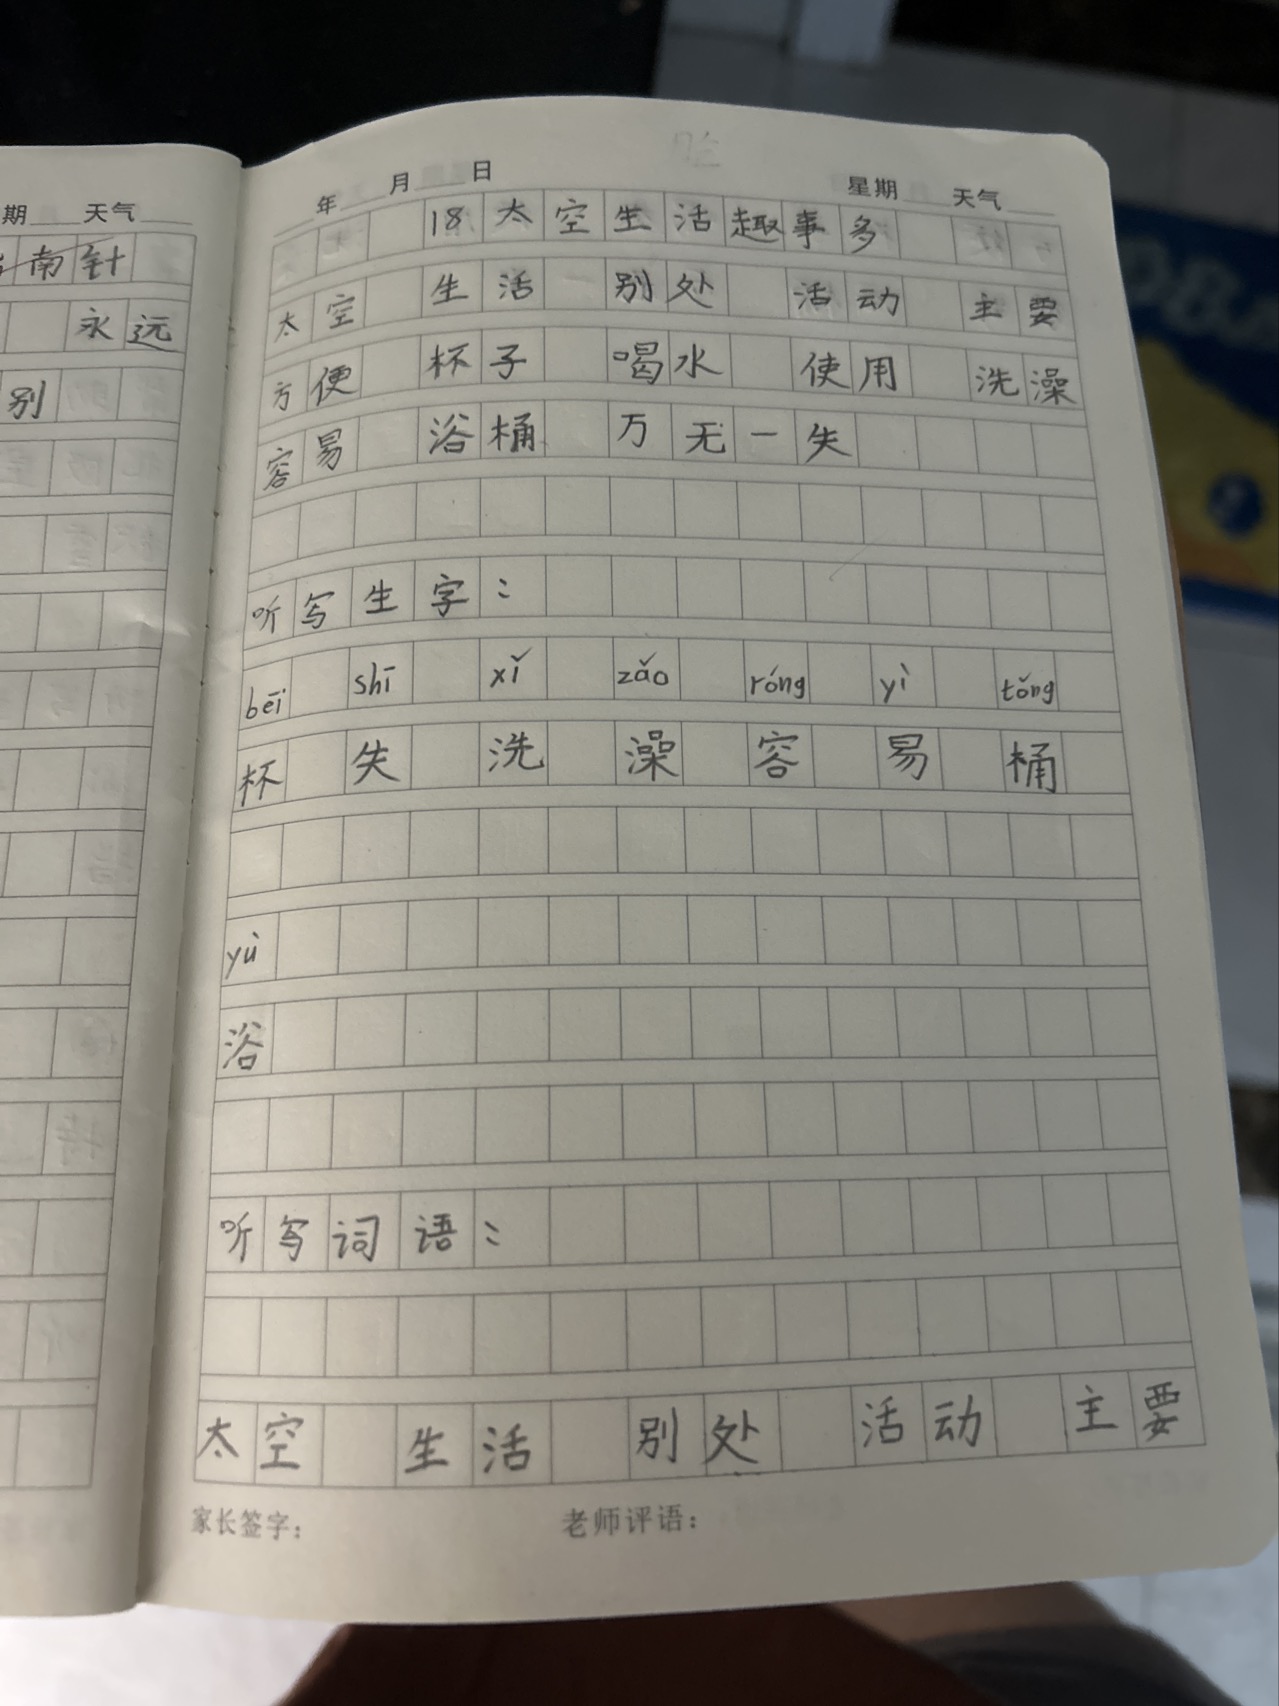 期 天气
南针
永远
别
年 月 日 星期 天气
18太空生活趣事多
太空 生活 别处 活动 主要
方便 杯子 喝水 使用 洗澡
容易 浴桶 万无一失
听写生字：
bēi shī xǐ zǎo róng yì tǒng
杯 失 洗 澡 容 易 桶
yù
浴
听写词语：
太空 生活 别处 活动 主要
家长签字： 老师评语：